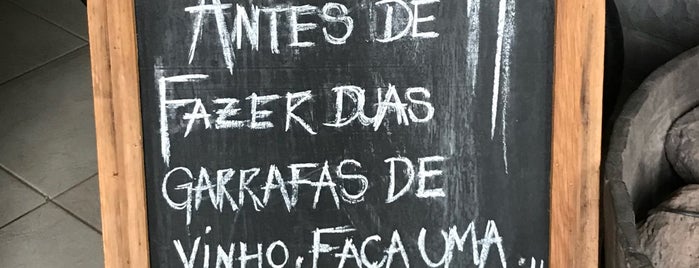 ANTES DE
FAZER DUAS
GARRAFAS DE
VINHO, FAÇA UMA...